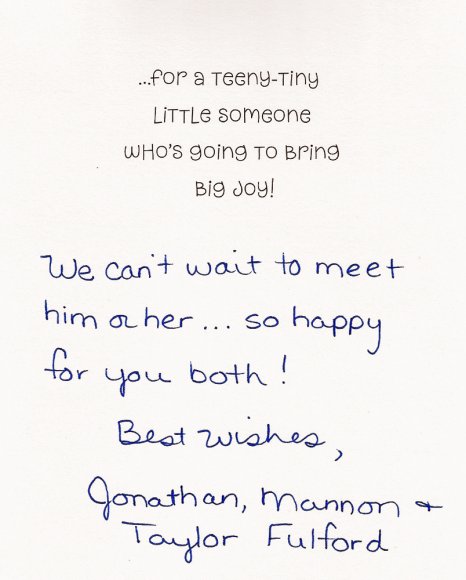 ...for a teeny-tiny
little someone
who's going to bring
big joy!
We can't wait to meet
him or her... so happy
for you both!
Best wishes,
Jonathan, Mannon +
Taylor Fulford